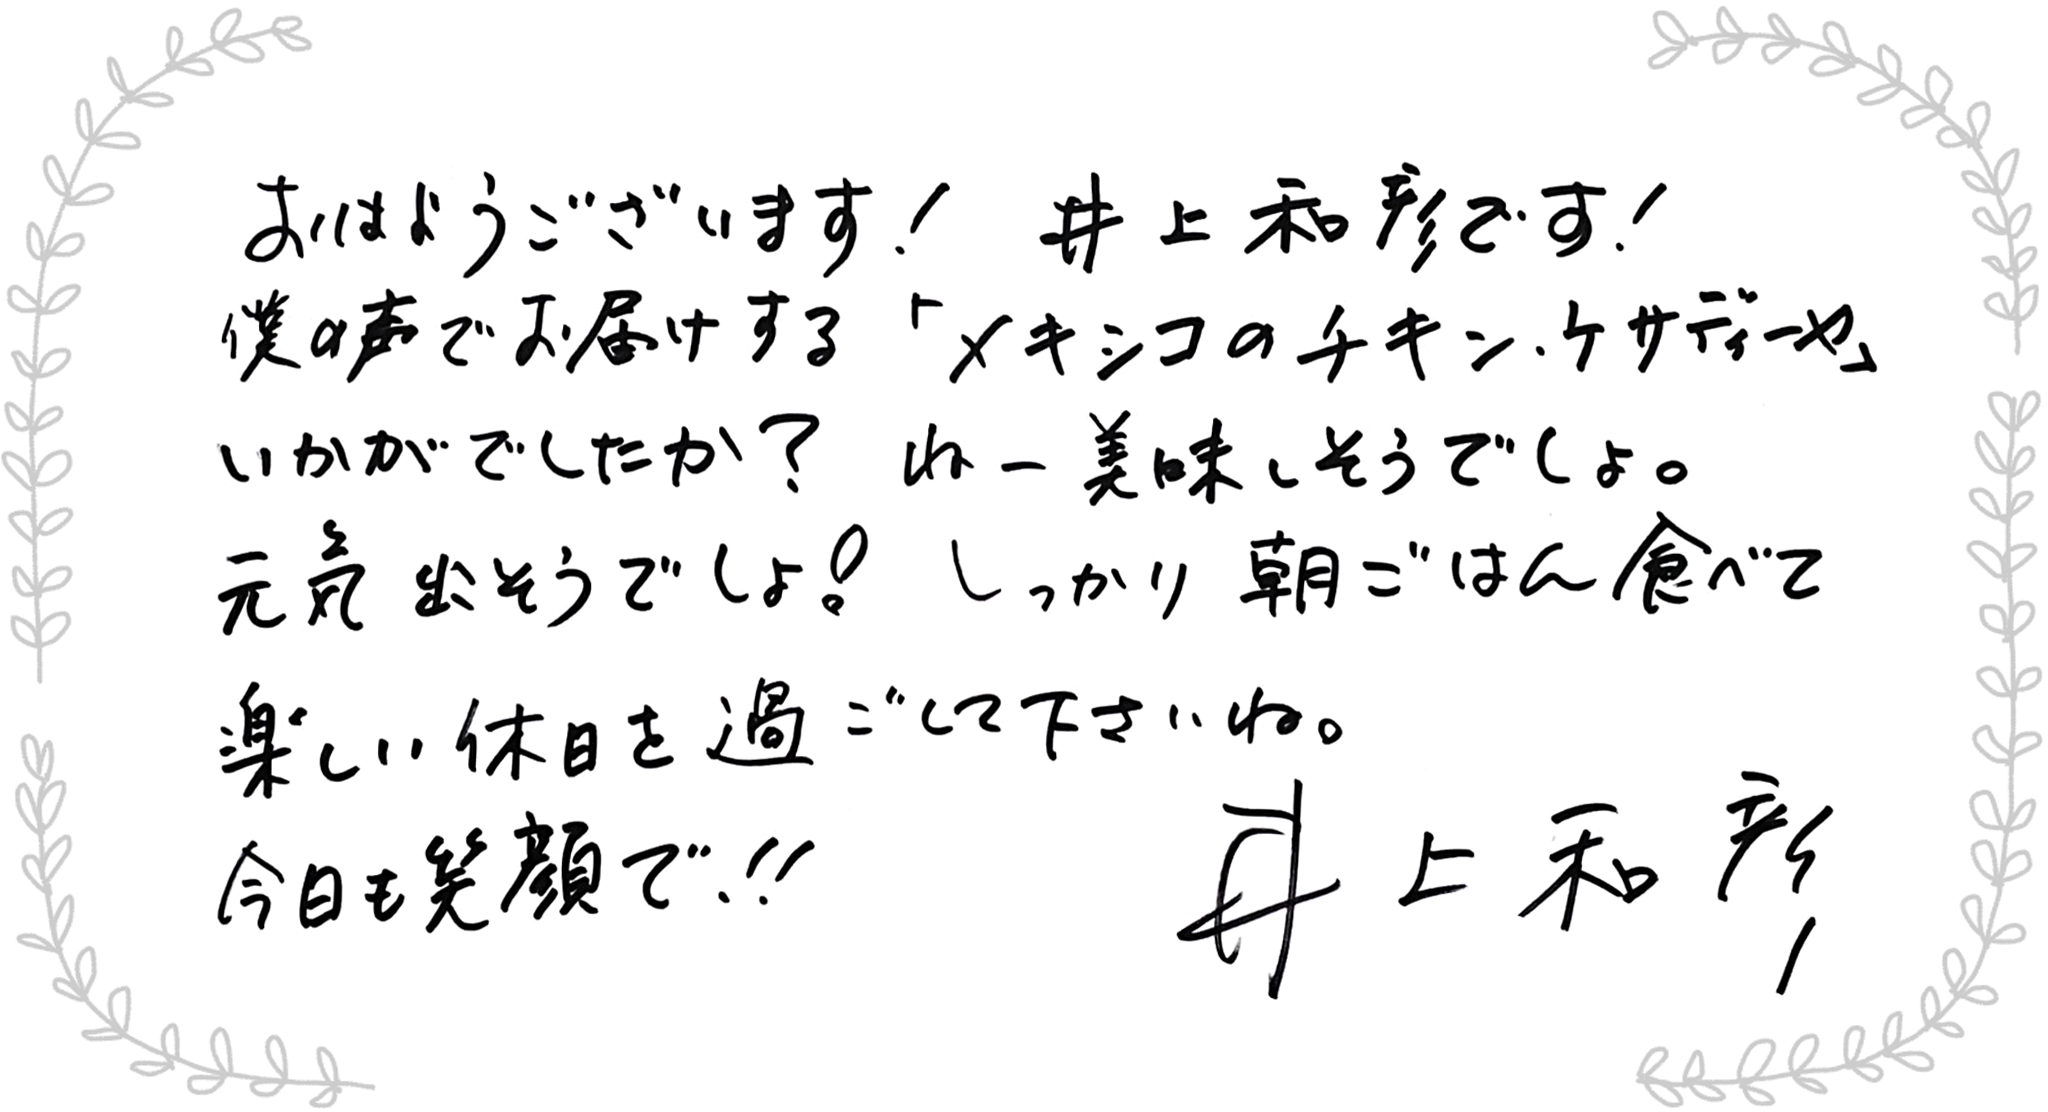 おはようございます！ 井上和彦です！
僕の声でお届けする「メキシコのチキン・ケサディーヤ」
いかがでしたか？ ねー美味しそうでしょ。
元気出そうでしょ！ しっかり朝ごはん食べて
楽しい休日を過ごして下さいね。
今日も笑顔で！！
井上和彦